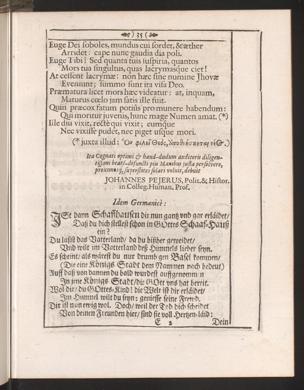 ( 35 )
Euge Dei soboles, mundus cui sordet, & æther
Arridet: cape nunc gaudia dia poli.
Euge Tibi! Sed quanta tuis suspiria, quantos
Mors tua singultus, quas lacrymasque ciet!
At cessent lacrymæ: non hæc sine numine Jhovæ
Eveniunt; summo sunt rata visa Deo.
Præmatura licet mors hæc videatur: at, inquam,
Maturus cœlo jam satis ille fuit.
Quin præcox fatum potiùs promunere habendum:
Qui moritur juvenis, hunc mage Numen amat. (*)
Ille diu vixit, rectè qui vixit; cumque
Nec vixisse pudet, nec piget usque mori.
(* juxta illud: Ὃν φιλεῖ Θεὸς, ἀποθνήσκει νέος.
Ita Cognati optimi & haud-dudum auditoris diligen-
tissimi beatè-defuncti piis Manibus justa persolvere,
proximosq; superstites solari voluit, debuit
JOHANNES PEJERUS, Polit. & Histor.
in Colleg. Human. Prof.
Idem Germanicè:
Ist dann Schaffhausen dir nun gantz und gar erläidet/
Daß du dich stellest schon in GOttes Schaaf-Hauß
ein?
Du laßst das Vatterland/ da du bißher geweidet/
Und wilt im Vatterland deß Himmels lieber seyn.
Es scheint/ als wärest du nur drumb gen Basel kommen/
(Die eine Königs Stadt dem Nammen noch bedeut)
Auff daß von dannen du bald wurdest auffgenommen
In jene Königs Stadt/ die GOtt uns hat bereit.
Wol dir/ du GOttes-Kind! die Welt ist dir erläidet/
Im Himmel wilt du seyn: geniesse seine Freud.
Dir ist nun ewig wol. Doch/ weil der Tod dich scheidet
Von deinen Freunden hier/ sind sie voll Hertzen-läid:
E 2
Dein